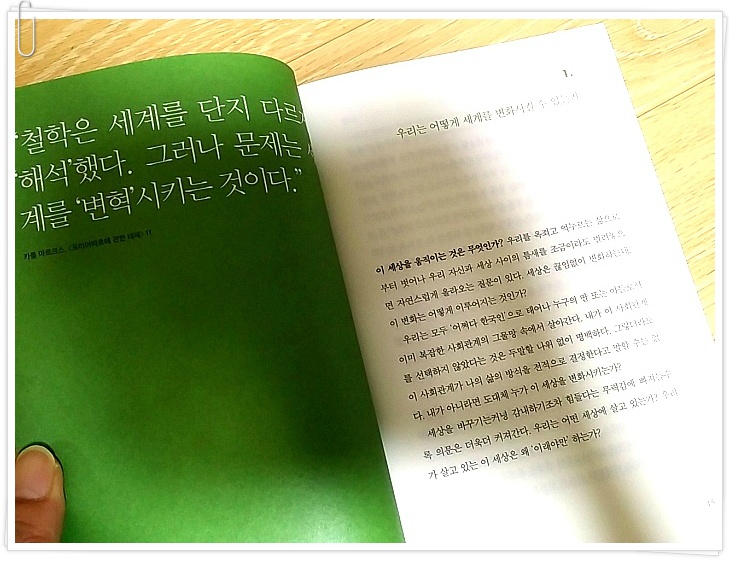 “철학은 세계를 단지 다르
‘해석’했다. 그러나 문제는 세
계를 ‘변혁’시키는 것이다.”
카를 마르크스, 〈포이어바흐에 관한 테제〉 11
1.
우리는 어떻게 세계를 변화시킬 수 있는가
이 세상을 움직이는 것은 무엇인가? 우리를 옥죄고 억누르는 삶으로
부터 벗어나 우리 자신과 세상 사이의 틈새를 조금이라도 벌려놓으
면 자연스럽게 올라오는 질문이 있다. 세상은 끊임없이 변화하는데,
이 변화는 어떻게 이루어지는 것인가?
우리는 모두 ‘어쩌다 한국인’으로 태어나 누구의 딸 또는 아들로서
이미 복잡한 사회관계의 그물망 속에서 살아간다. 내가 이 사회관계
를 선택하지 않았다는 것은 두말할 나위 없이 명백하다. 그렇더라도
이 사회관계가 나의 삶의 방식을 전적으로 결정한다고 말할 수는 없
다. 내가 아니라면 도대체 누가 이 세상을 변화시키는가?
세상을 바꾸기는커녕 감내하기조차 힘들다는 무력감에 빠져들수
록 의문은 더욱더 커져간다. 우리는 어떤 세상에 살고 있는가? 우리
가 살고 있는 이 세상은 왜 ‘이래야만’ 하는가?